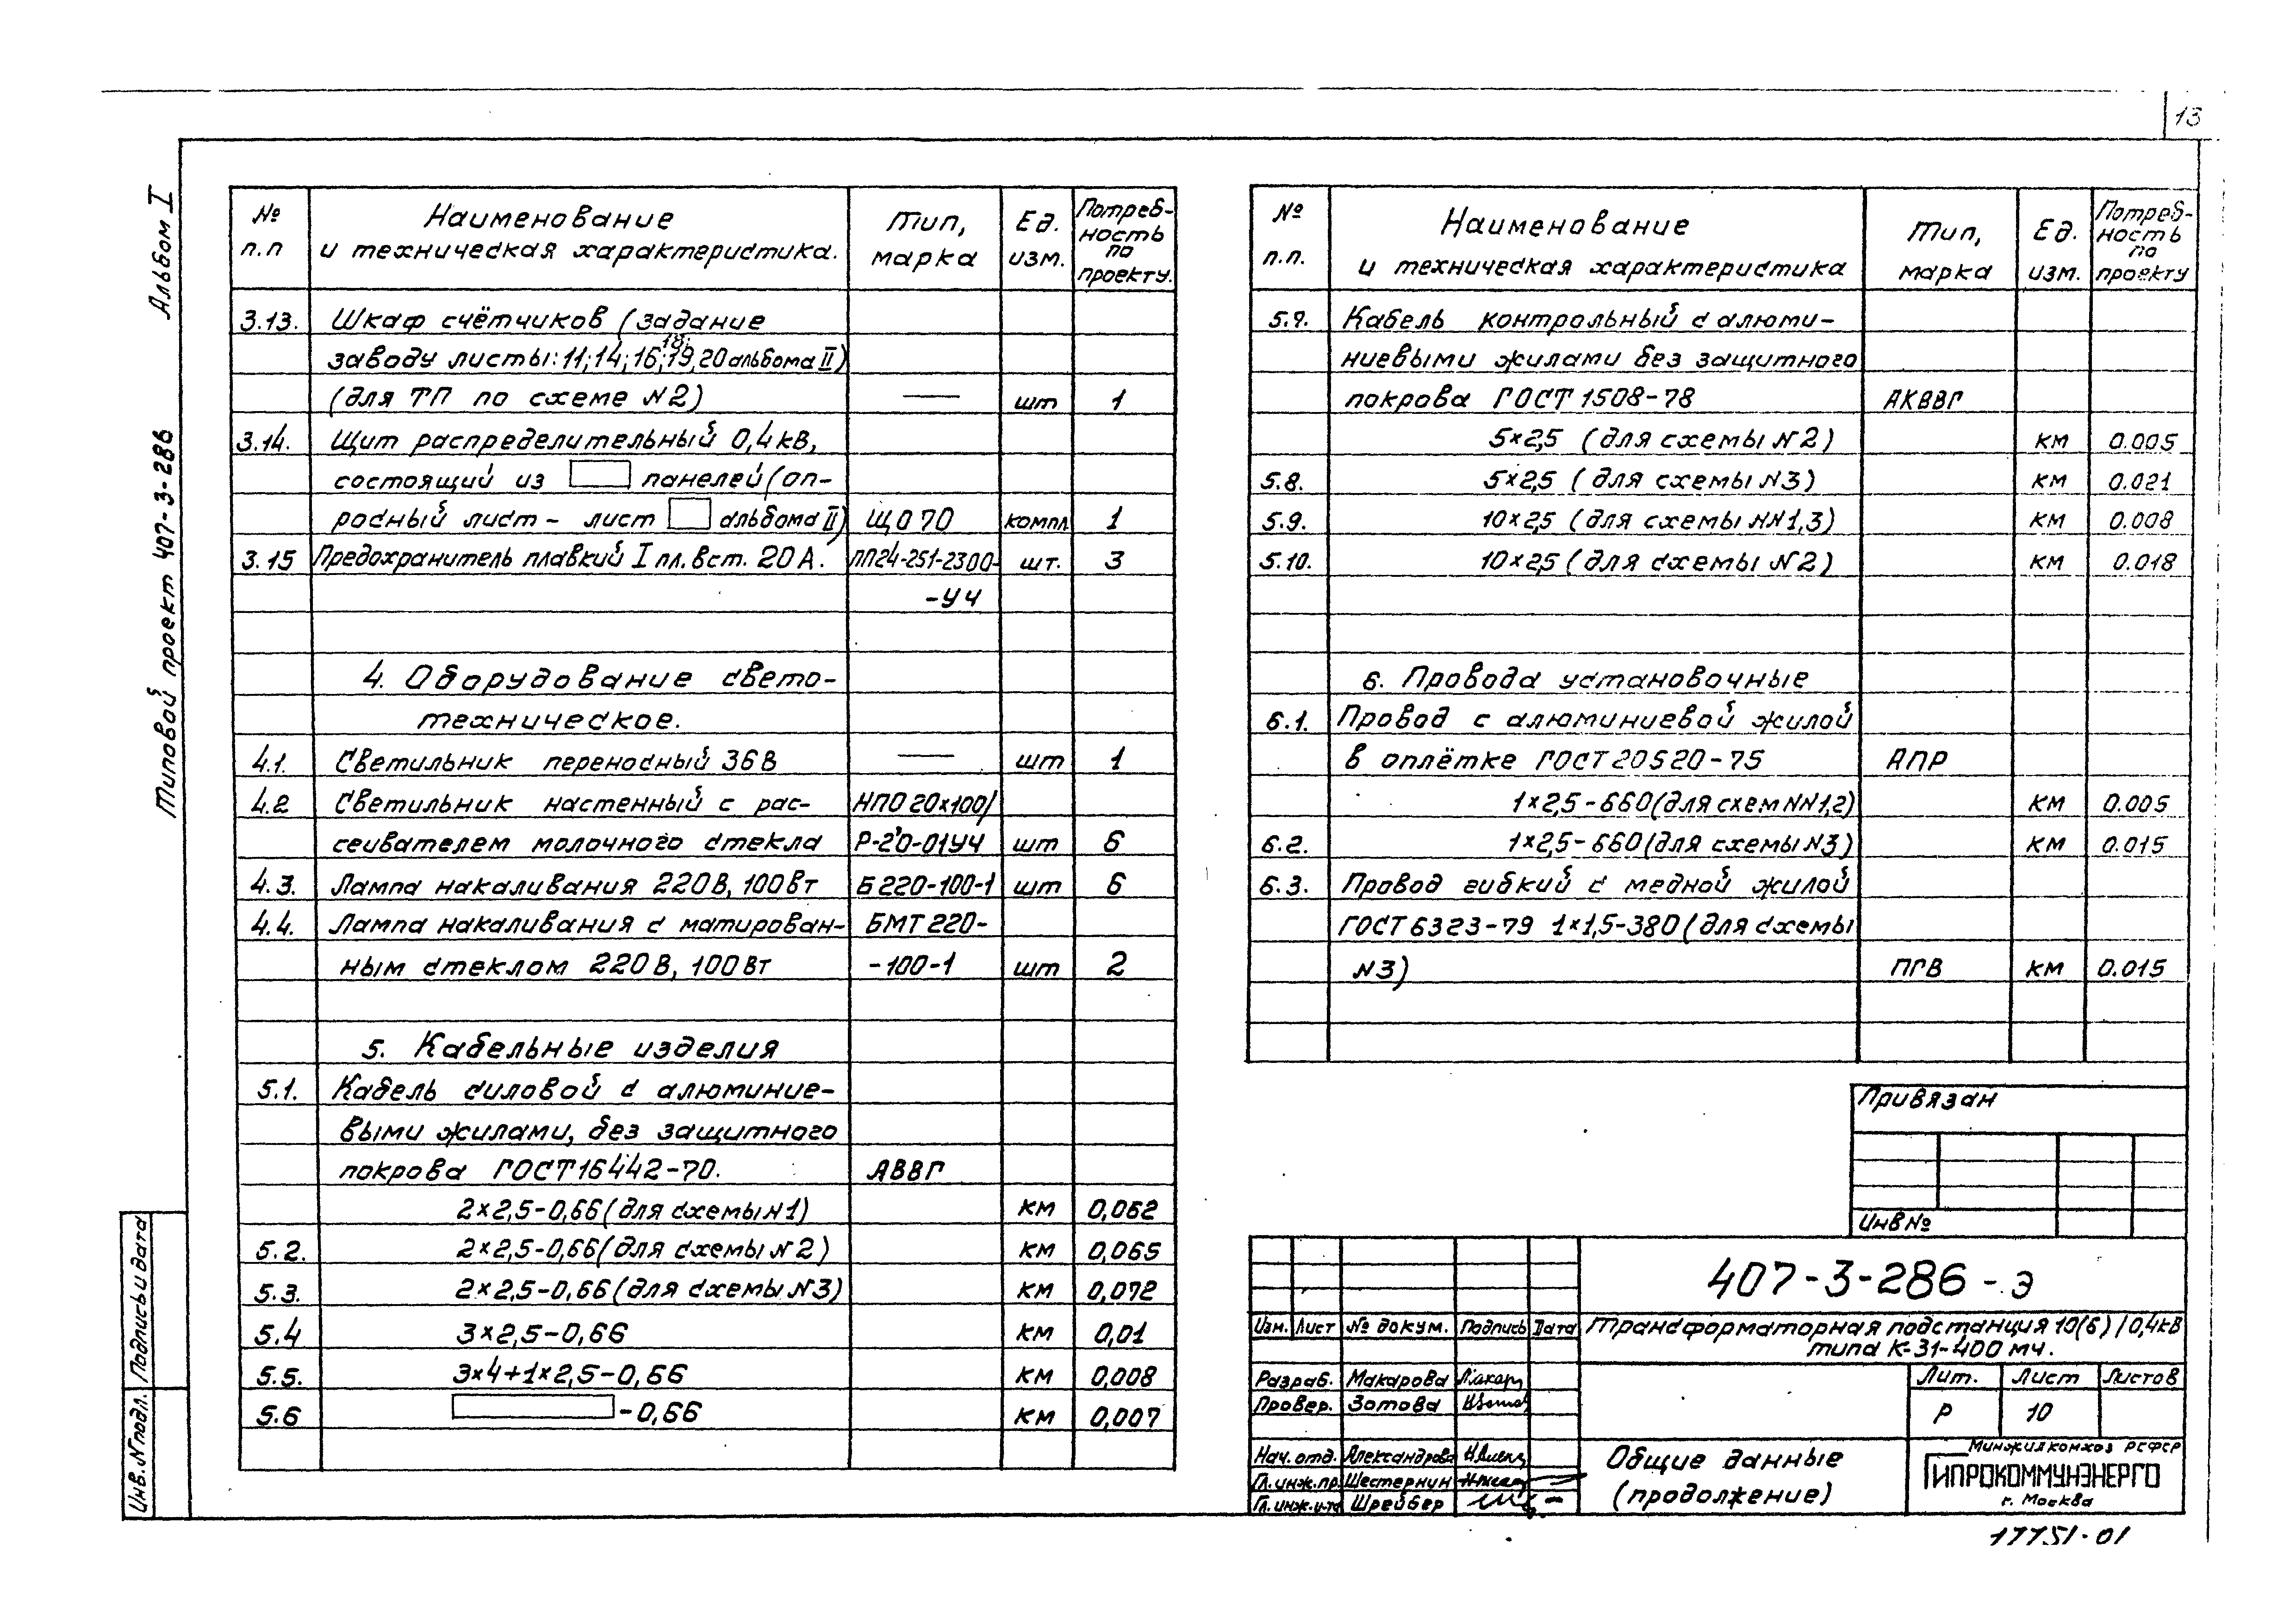 13
Альбом I
Типовой проект 407-3-286
Подпись и дата
Инв. № подл.
№ п.п Наименование и техническая характеристика. Тип, марка Ед. изм. Потребность по проекту.
3.13. Шкаф счётчиков (задание
заводу листы: 11; 14; 16; 18; 19, 20 альбома II)
(для ТП по схеме №2) — шт 1
3.14. Щит распределительный 0,4кв,
состоящий из панелей (оп-
росный лист - лист альбома II) ЩО70 компл 1
3.15 Предохранитель плавкий I пл. вст. 20А. ПП24-251-2300- шт. 3
-У4
4. Оборудование свето-
техническое.
4.1. Светильник переносный 36В — шт 1
4.2 Светильник настенный с рас- НПО 20х100/
сеивателем молочного стекла Р-2'0-01У4 шт 6
4.3. Лампа накаливания 220В, 100Вт Б220-100-1 шт 6
4.4. Лампа накаливания с матирован- БМТ 220-
ным стеклом 220В, 100Вт -100-1 шт 2
5. Кабельные изделия
5.1. Кабель силовой с алюминие-
выми жилами, без защитного
покрова ГОСТ 16442-70. АВВГ
2×2,5-0,66 (для схемы №1) км 0,062
5.2. 2×2,5-0,66 (для схемы №2) км 0,065
5.3. 2×2,5-0,66 (для схемы №3) км 0,072
5.4 3×2,5-0,66 км 0,01
5.5. 3×4+1×2,5-0,66 км 0,008
5.6 -0,66 км 0,007
№ п.п. Наименование и техническая характеристика Тип, марка Ед. изм. Потребность по проекту
5.7. Кабель контрольный с алюми-
ниевыми жилами без защитного
покрова ГОСТ 1508-78 АКВВГ
5×2,5 (для схемы №2) км 0.005
5.8. 5×2,5 (для схемы №3) км 0.021
5.9. 10×2,5 (для схемы №№1,3) км 0.008
5.10. 10×2,5 (для схемы №2) км 0.018
6. Провода установочные
6.1. Провод с алюминиевой жилой
в оплётке ГОСТ 20520-75 АПР
1×2,5-660 (для схем №№1,2) км 0.005
6.2. 1×2,5-660 (для схемы №3) км 0.015
6.3. Провод гибкий с медной жилой
ГОСТ 6323-79 1×1,5-380 (для схемы
№3) ПГВ км 0.015
Привязан
Инв №
407-3-286-Э
Изм. Лист № докум. Подпись Дата
Трансформаторная подстанция 10(6)/0,4кВ
типа К-31-400 м4.
Разраб. Макарова
Провер. Зотова
Нач. отд. Александрова
Гл. инж. пр. Шестернин
Гл. инж. и-та Шрейбер
Лит. Лист Листов
Р 10
Общие данные
(продолжение)
Минжилкомхоз РСФСР
ГИПРОКОММУНЭНЕРГО
г. Москва
17751-01